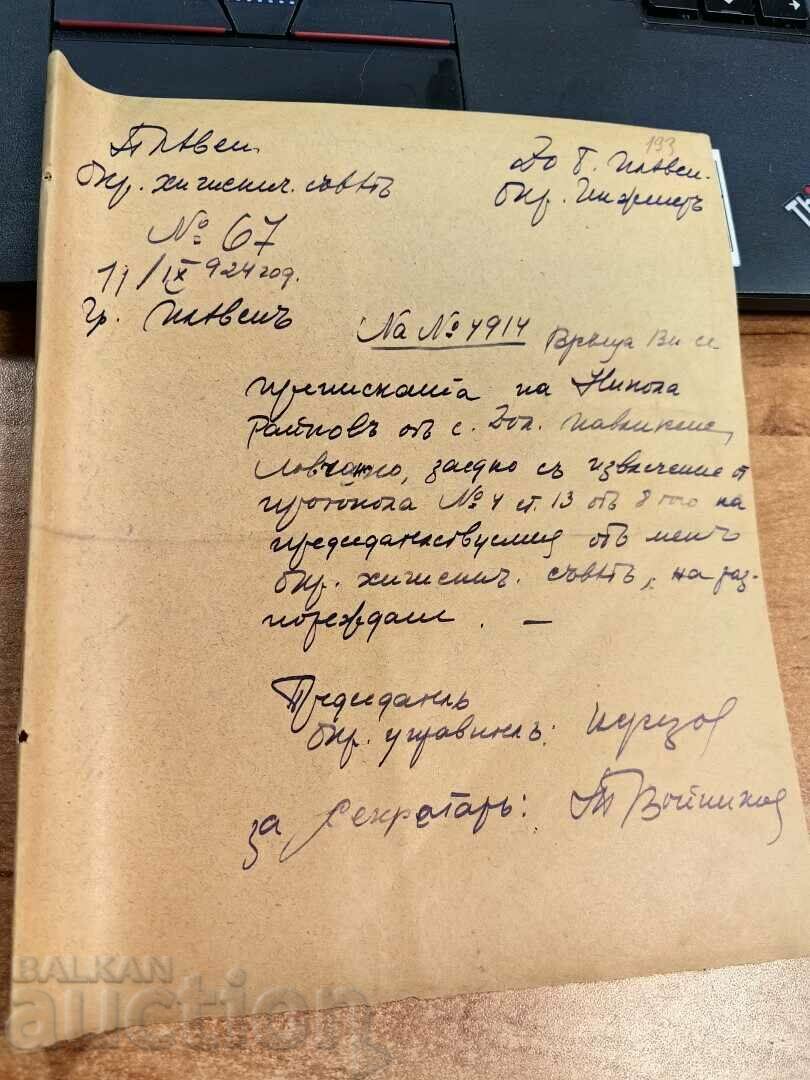 193
Плевен.
Окр. хигиенич. съветъ
№ 67
11/IX 924 год.
гр. Плевенъ
До Г. Плевен.
Окр. Инженеръ
На № 4914 Връща Ви се
преписката на Никола
от с. Дол. Павликене,
Ловчанско, заедно съ извлечение от
протокола № 4 ст. 13 отъ 8 того на
председателствуемия отъ менъ
окр. хигиенич. съветъ, на раз-
пореждане. —
Председатель
Окр. управитель:
за Секретарь: Войников
BALKAN
auction
Th